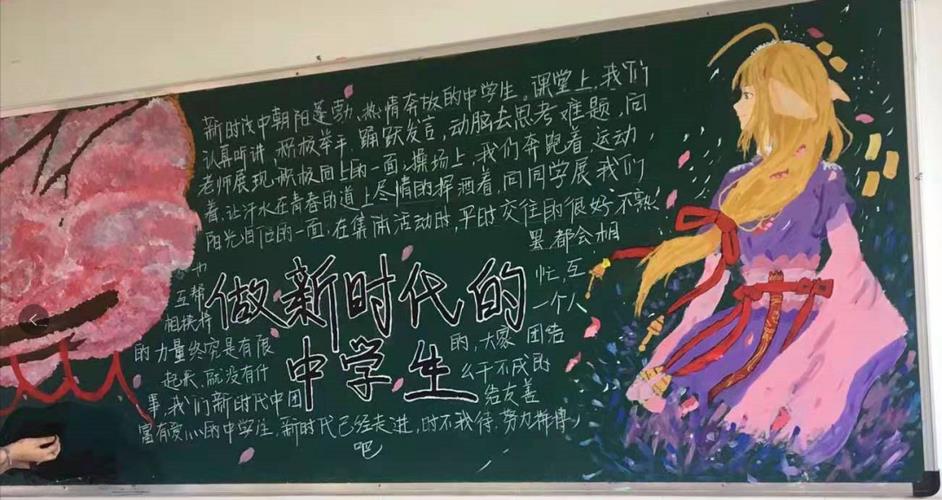 新时代中朝阳蓬勃、热情奔放的中学生。课堂上,我们
认真听讲、积极举手、踊跃发言,动脑去思考难题,向
老师展现积极向上的一面。操场上,我们奔跑着、运动
着,让汗水在青春的道上尽情的挥洒着,向同学展我们
阳光自信的一面。在集体活动时,平时交往的很好、不熟
都会相
互帮 忙,互
相扶持 一个人
做新时代的
中学生
的力量终究是有限 的,大家 团结
起来,就没有什 么干不成的
事,我们新时代中团 结友善
富有爱心的中学生,新时代已经走进,时不我待,努力拼搏
吧